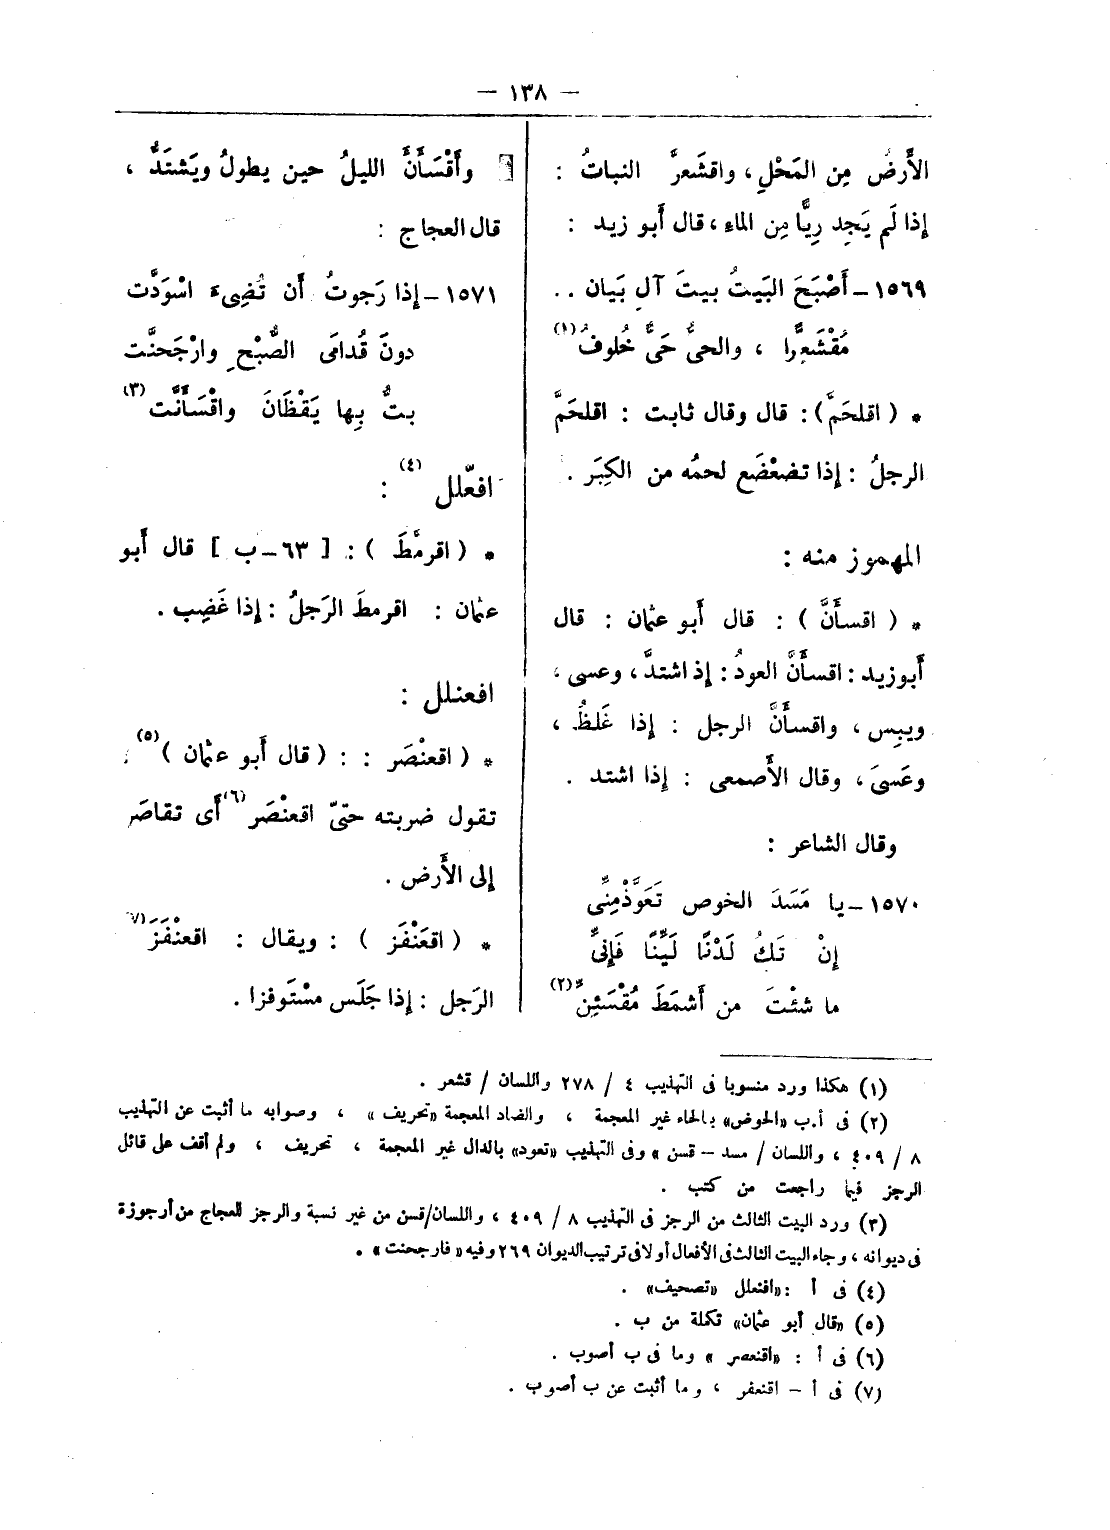 — ١٣٨ —
الأَرضُ مِن المَحْلِ، واقشَعرَّ النباتُ :
إذا لَم يَجِد رِيًّا مِن الماءِ، قال أَبو زيد :
١٥٦٩ـ أَصْبَحَ البَيتُ بيتَ آلِ بَيان ..
مُقْشَعِرًّا ، والحىُّ حَىٌّ خُلوفُ(١)
* ( اقلحَمَّ) : قال وقال ثابت : اقلحَمَّ
الرجلُ : إذا تضَعْضَع لحمُه من الكِبَر .
المهموز منه :
* ( اقسأَنَّ ) : قال أَبو عثمان : قال
أَبوزيد : اقسأَنَّ العودُ : إذ اشتدَّ، وعسى ،
ويبِس ، واقسأَنَّ الرجل : إذا غَلظُ ،
وعَسىَ ، وقال الأَصمعى : إذا اشتد .
وقال الشاعر :
١٥٧٠ـ يا مَسَدَ الخوص تَعَوَّذْمِنِّى
إنْ تَكُ لَدْنًا لَيِّنًا فَإِنىِّ
ما شئْتَ من أَشمَطَ مُقْسَئِنِّ(٢)
وأَقْسَأَنَّ الليلُ حين يطولُ ويَشتَدُّ ،
قال العجاج :
١٥٧١ـ إذا رَجوتُ أَن تُضِىءَ اسْوَدَّت
دونَ قُدامَى الصُّبْحِ وارْجَحنَّت
بتُّ بِها يَقْظَانَ واقْسَأَنَّت(٣)
افعّلل(٤) :
* ( اقرمَّطَ ) : [ ٦٣ـب ] قال أَبو
عثمان : اقرمطَ الرَجلُ : إذا غَضِب .
افعنلل :
* ( اقعنْصَر : : ( قال أَبو عثمان )(٥) :
تقول ضربته حتىّ اقعنْصَر(٦) أَى تقاصَر
إلى الأَرض .
* ( اقعَنْفَز ) : ويقال : اقعنْفَزَ(٧)
الرَجل : إذا جَلَس مسْتَوفزا .
(١) هكذا ورد منسوبا فى التهذيب ٤ / ٢٧٨ واللسان / قشعر .
(٢) فى أ.ب «الحوض» بالحاء غير المعجمة ، والضاد المعجمة «تحريف» ، وصوابه ما أثبت عن التهذيب
٨ / ٤٠٩ ، واللسان / مسد – قسن » وفى التهذيب «تعود» بالدال غير المعجمة ، تحريف ، ولم أقف على قائل
الرجز فيما راجعت من كتب .
(٣) ورد البيت الثالث من الرجز فى التهذيب ٨ / ٤٠٩ ، واللسان/قسن من غير نسبة والرجز للعجاج من أرجوزة
فى ديوانه ، وجاء البيت الثالث فى الأفعال أولا فى ترتيب الديوان ٢٦٩ وفيه « فارجحنت » .
(٤) فى أ : «افتعلل «تصحيف» .
(٥) «قال أبو عثمان» تكملة من ب .
(٦) فى أ : «اقنعصر » وما فى ب أصوب .
(٧) فى أ – اقنعفر ، وما أثبت عن ب أصوب .